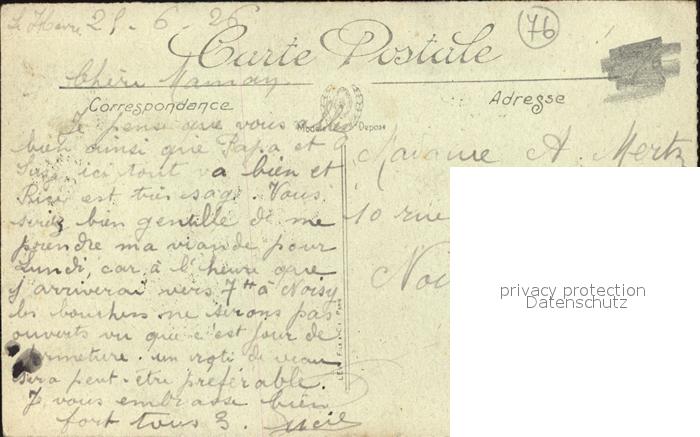 Le Havre 25-6-26
76
Carte Postale
Chère Maman
Correspondance
Adresse
Modèle Déposé
Je pense que vous allez
bien ainsi que Papa et
ici tout va bien et
est très sage. Vous
seriez bien gentille de me
prendre ma viande pour
Lundi, car à l'heure que
j'arriverai vers 7H à Noisy
les bouchers ne serons pas
ouverts vu que c'est jour de
fermeture. un roti de veau
sera peut-être préférable.
Je vous embrasse bien
fort tous 3.
Madame A. Mertz
10 rue
Noi
privacy protection
Datenschutz